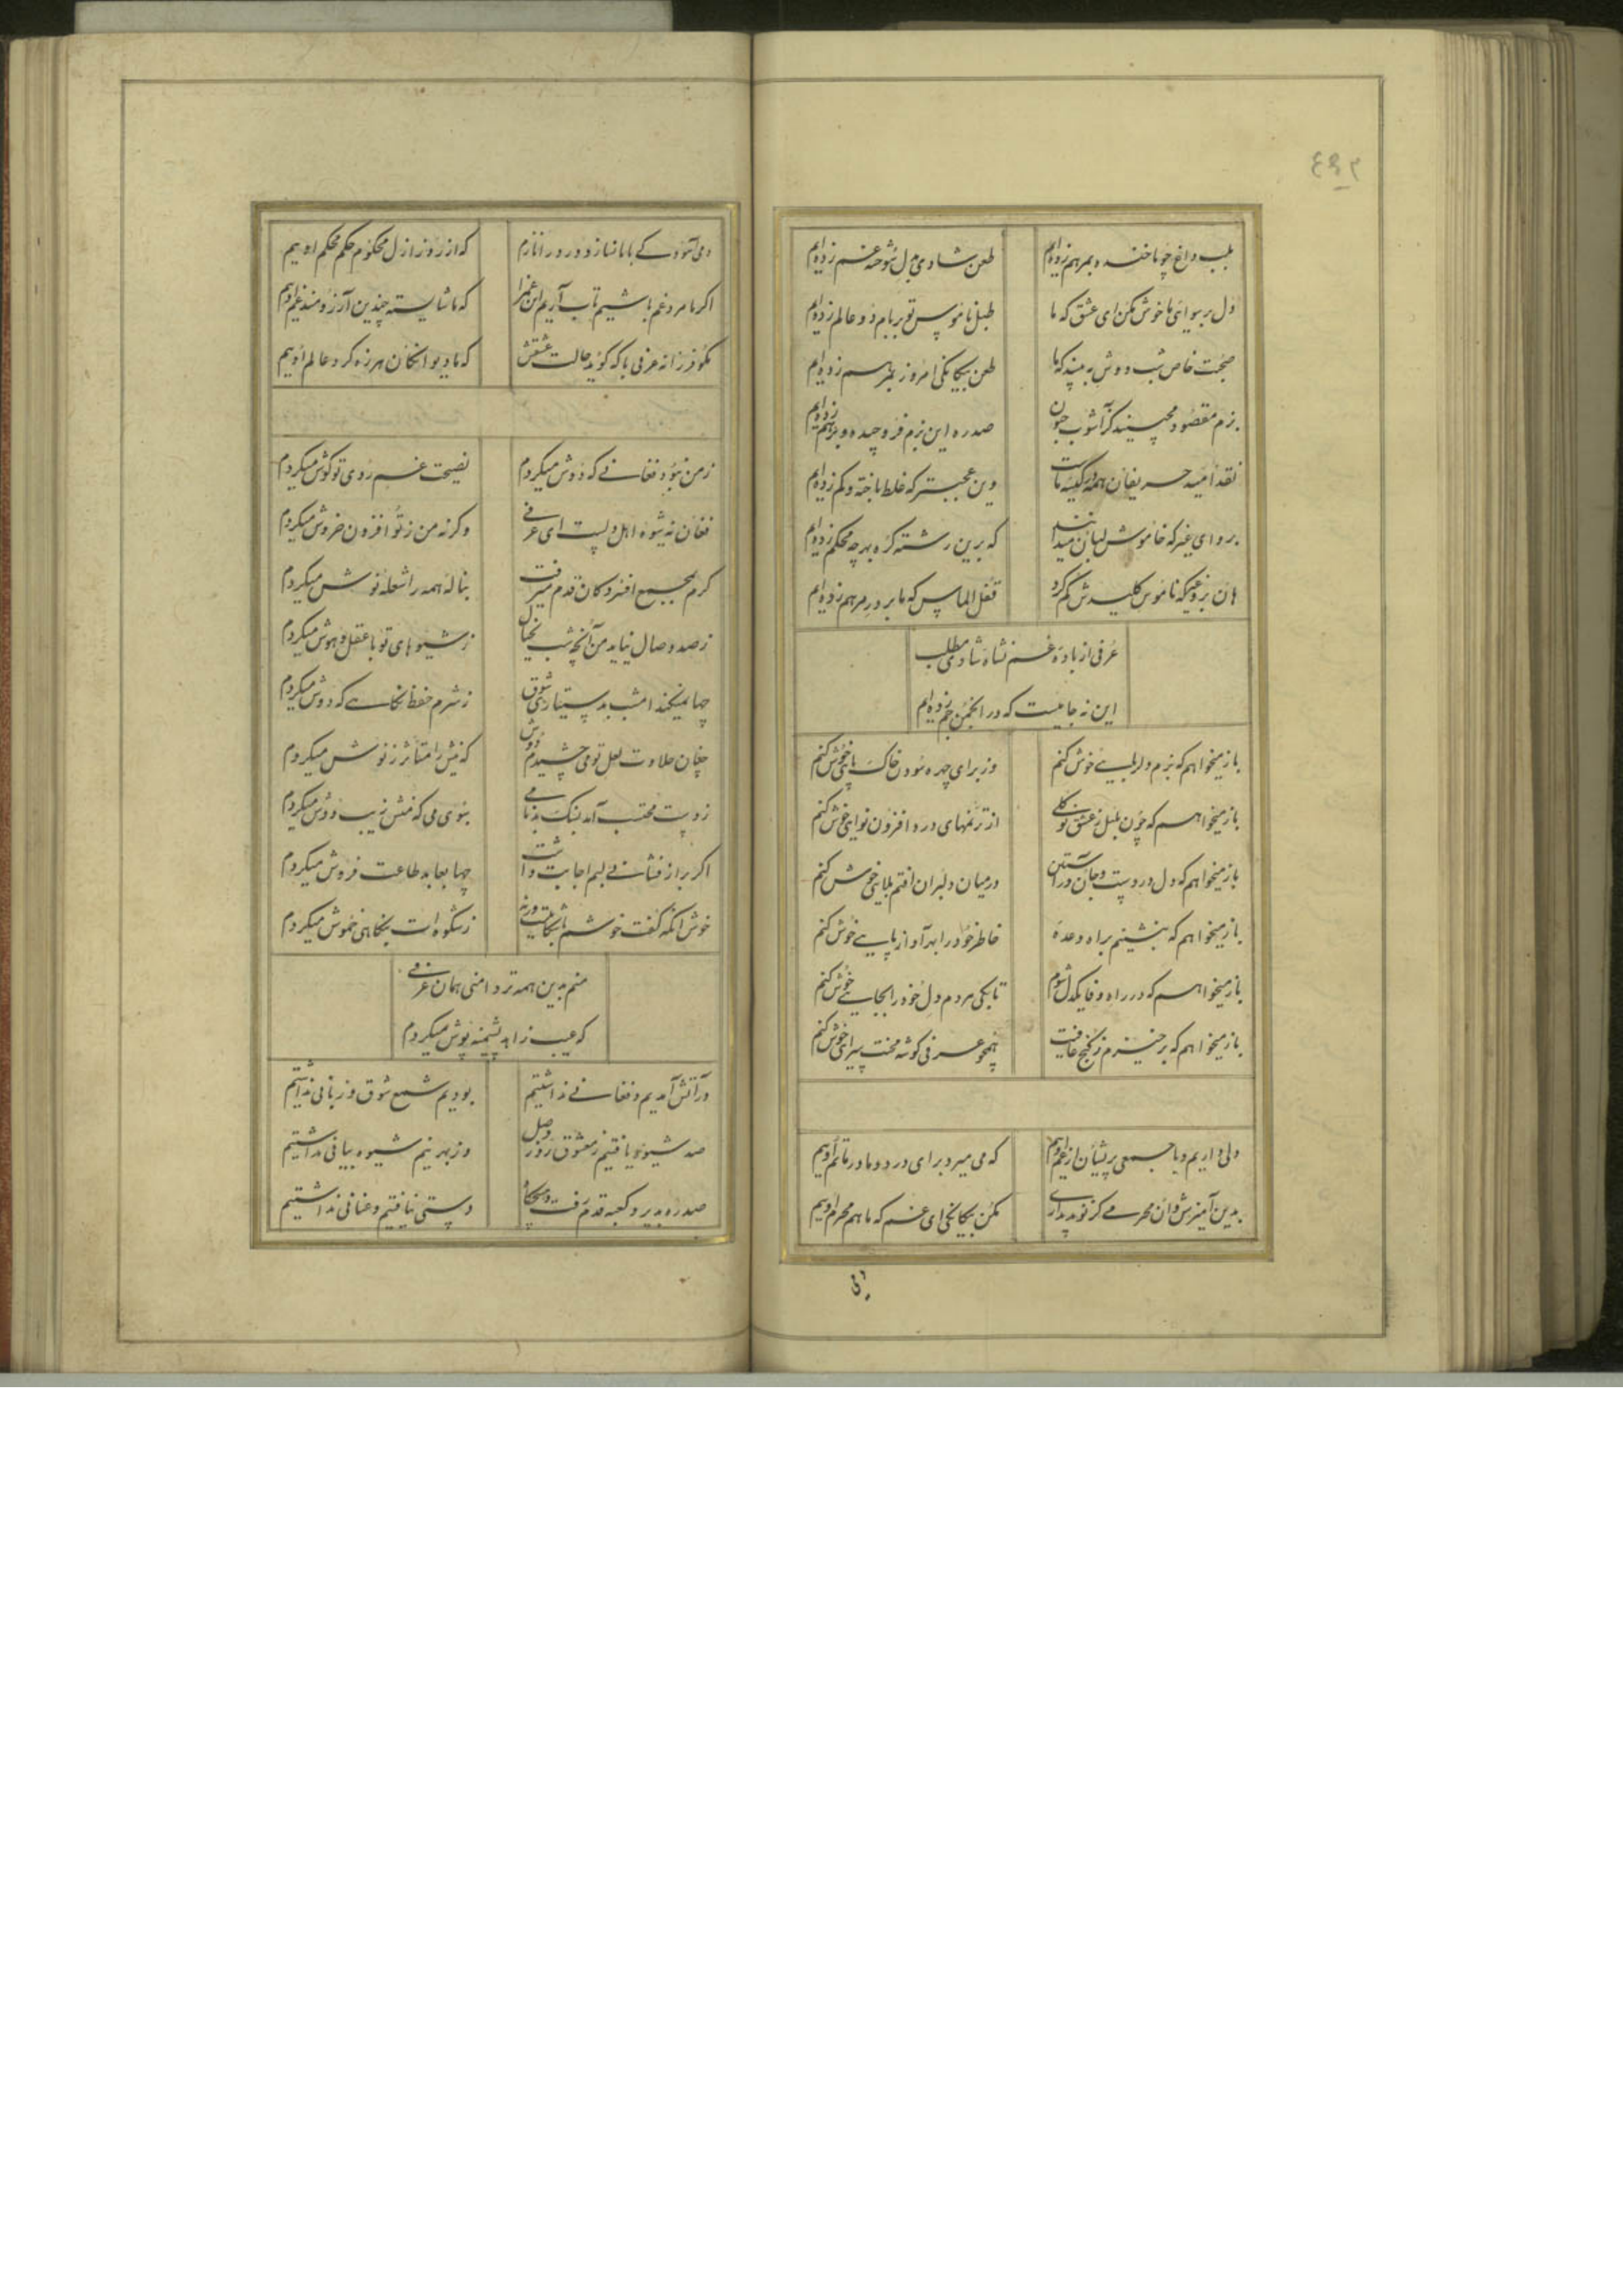 بلب داغ چو ما خنده بمرهم زده‌ایم
طعن شادی بدل سوخته غم زده‌ایم
دل برسوائی ما خوش مکن ای عشق که ما
طبل ناموس تو بر بام دو عالم زده‌ایم
صحبت خاص شب دوش به بینید که ما
طعن بیکانکی امروز بمرهم زده‌ایم
بزم مقصود مچینید کز آشوب جنون
صد ره این بزم فرو چیده و برهم زده‌ایم
نقد امید حریفان همه در کیسه ماست
وین عجبتر که غلط باخته و کم زده‌ایم
برو ای غیر که خاموش لبان میدانند
که برین رشته کره بهر چه محکم زده‌ایم
هان بزن که ناموس کلیدش کم کرد
قفل الماس که ما بر در مرهم زده‌ایم
عرفی از باده غم نشاه شادی مطلب
این نه جامیست که در انجمن جم زده‌ایم
باز میخواهم که بزم دلربایی خوش کنم
وز برای چهره سودن خاک پایی خوش کنم
باز میخواهم که چون بلبل ز عشق نو کلی
از ترنمهای درد افزون نوایی خوش کنم
باز میخواهم که دل در دست و جان در آستین
در میان دلبران افتم بلایی خوش کنم
باز میخواهم که بنشینم براه وعده
خاطر خود را بهر آواز پایی خوش کنم
باز میخواهم که در راه وفا یکدل شوم
تا بکی هر دم دل خود را بجایی خوش کنم
باز میخواهم که بر خیزم ز کنج عافیت
همچو عرفی کوشه محنت سرای خوش کنم
دلی داریم و با جمعی پریشان از غم اویم
که می میرد برای درد و ما در ماتم اویم
بدین آمیزش و ان محرمی کز تو پدیداری
مکن بیکانکی ای غم که ما هم محرم اویم
دمی آسودکی با ما نسازد درد را نازم
که از روز ازل محکوم حکم محکم اویم
اکر ما مرد غم باشیم تاب آریم این غم را
که ما شایسته چندین آرزومند غم اویم
مکو فرزانه عرفی با که کوید حالت عشقش
که ما دیوانکان هرزه کرد عالم اویم
ز من نبود فغانی که دوش میکردم
نصیحت غم روی تو کوش میکردم
فغان نه شیوه اهل دلست ای عرفی
وکرنه من ز تو افزون خروش میکردم
کرم بمجمع افسردکان قدم میرفت
بناله همه را شعله نوش میکردم
ز صد وصال نیاید من آنچه شب بخیال
ز شیوهای تو با عقل و هوش میکردم
چها نمیکند امشب بدستیاری شوق
ز شرم حفظ نکاهی که دوش میکردم
چنان حلاوت لعل تو می چشیدم دوش
که نیش را متاثر ز نوش میکردم
ز دست محتسب آمد بننک بدنامی
سبوی می که منش زیب دوش میکردم
اکر براز فشانی لبم اجابت داشت
چها بعابد طاعت فروش میکردم
خوش آنکه کفت خوشم با شکایتت ورنه
ز شکوه‌ات بنکاهی خموش میکردم
منم بدین همه تر دامنی همان عرفی
که عیب زاهد پشمینه پوش میکردم
در آتش آمدیم و فغانی نداشتیم
بودیم شمع شوق و زبانی نداشتیم
صد شیوه یافتیم ز معشوق روز وصل
وز بهر نیم شیوه بیانی نداشتیم
صد ره بدیر و کعبه قدم رفت و هیچکاه
دستی نیافتیم و عنانی نداشتیم